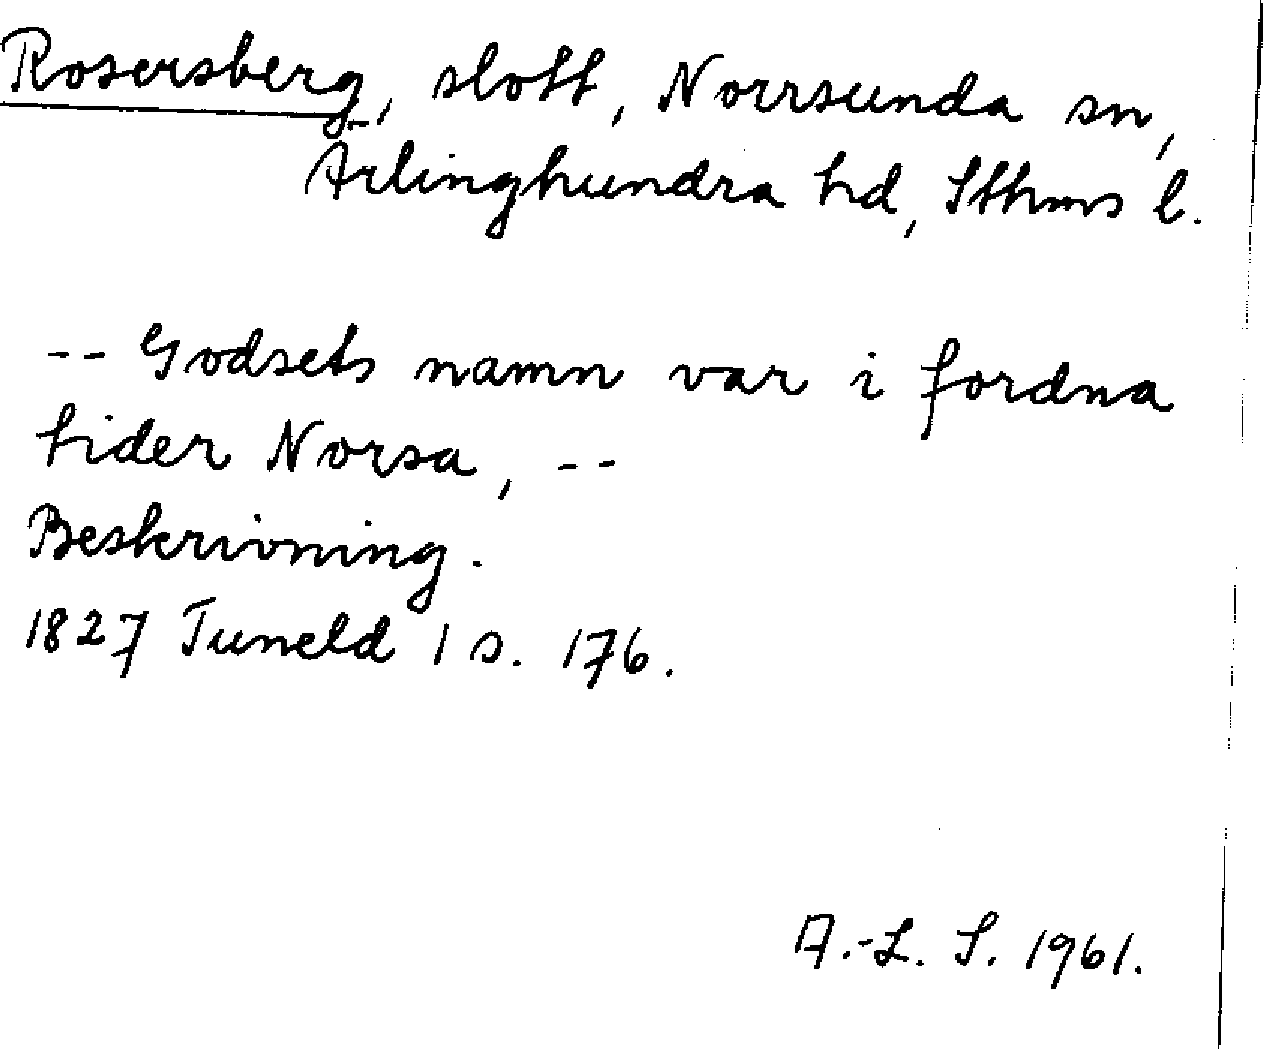 Rosersberg, slott, Norrsunda sn,
Ärlinghundra hd, Sthms l.
-- Godsets namn var i fordna
tider Norsa, --
Beskrivning.
1827 Tuneld I s. 176.
A.-L. S. 1961.